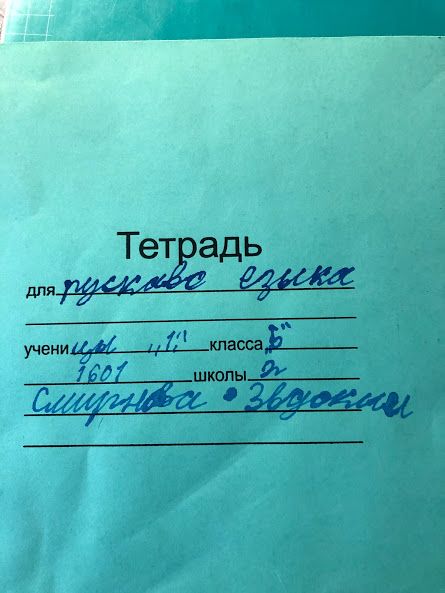 Тетрадь
для рускаво езыка
учени цы „1" класса „Б"
1601 школы
Смирнова • Звдокии